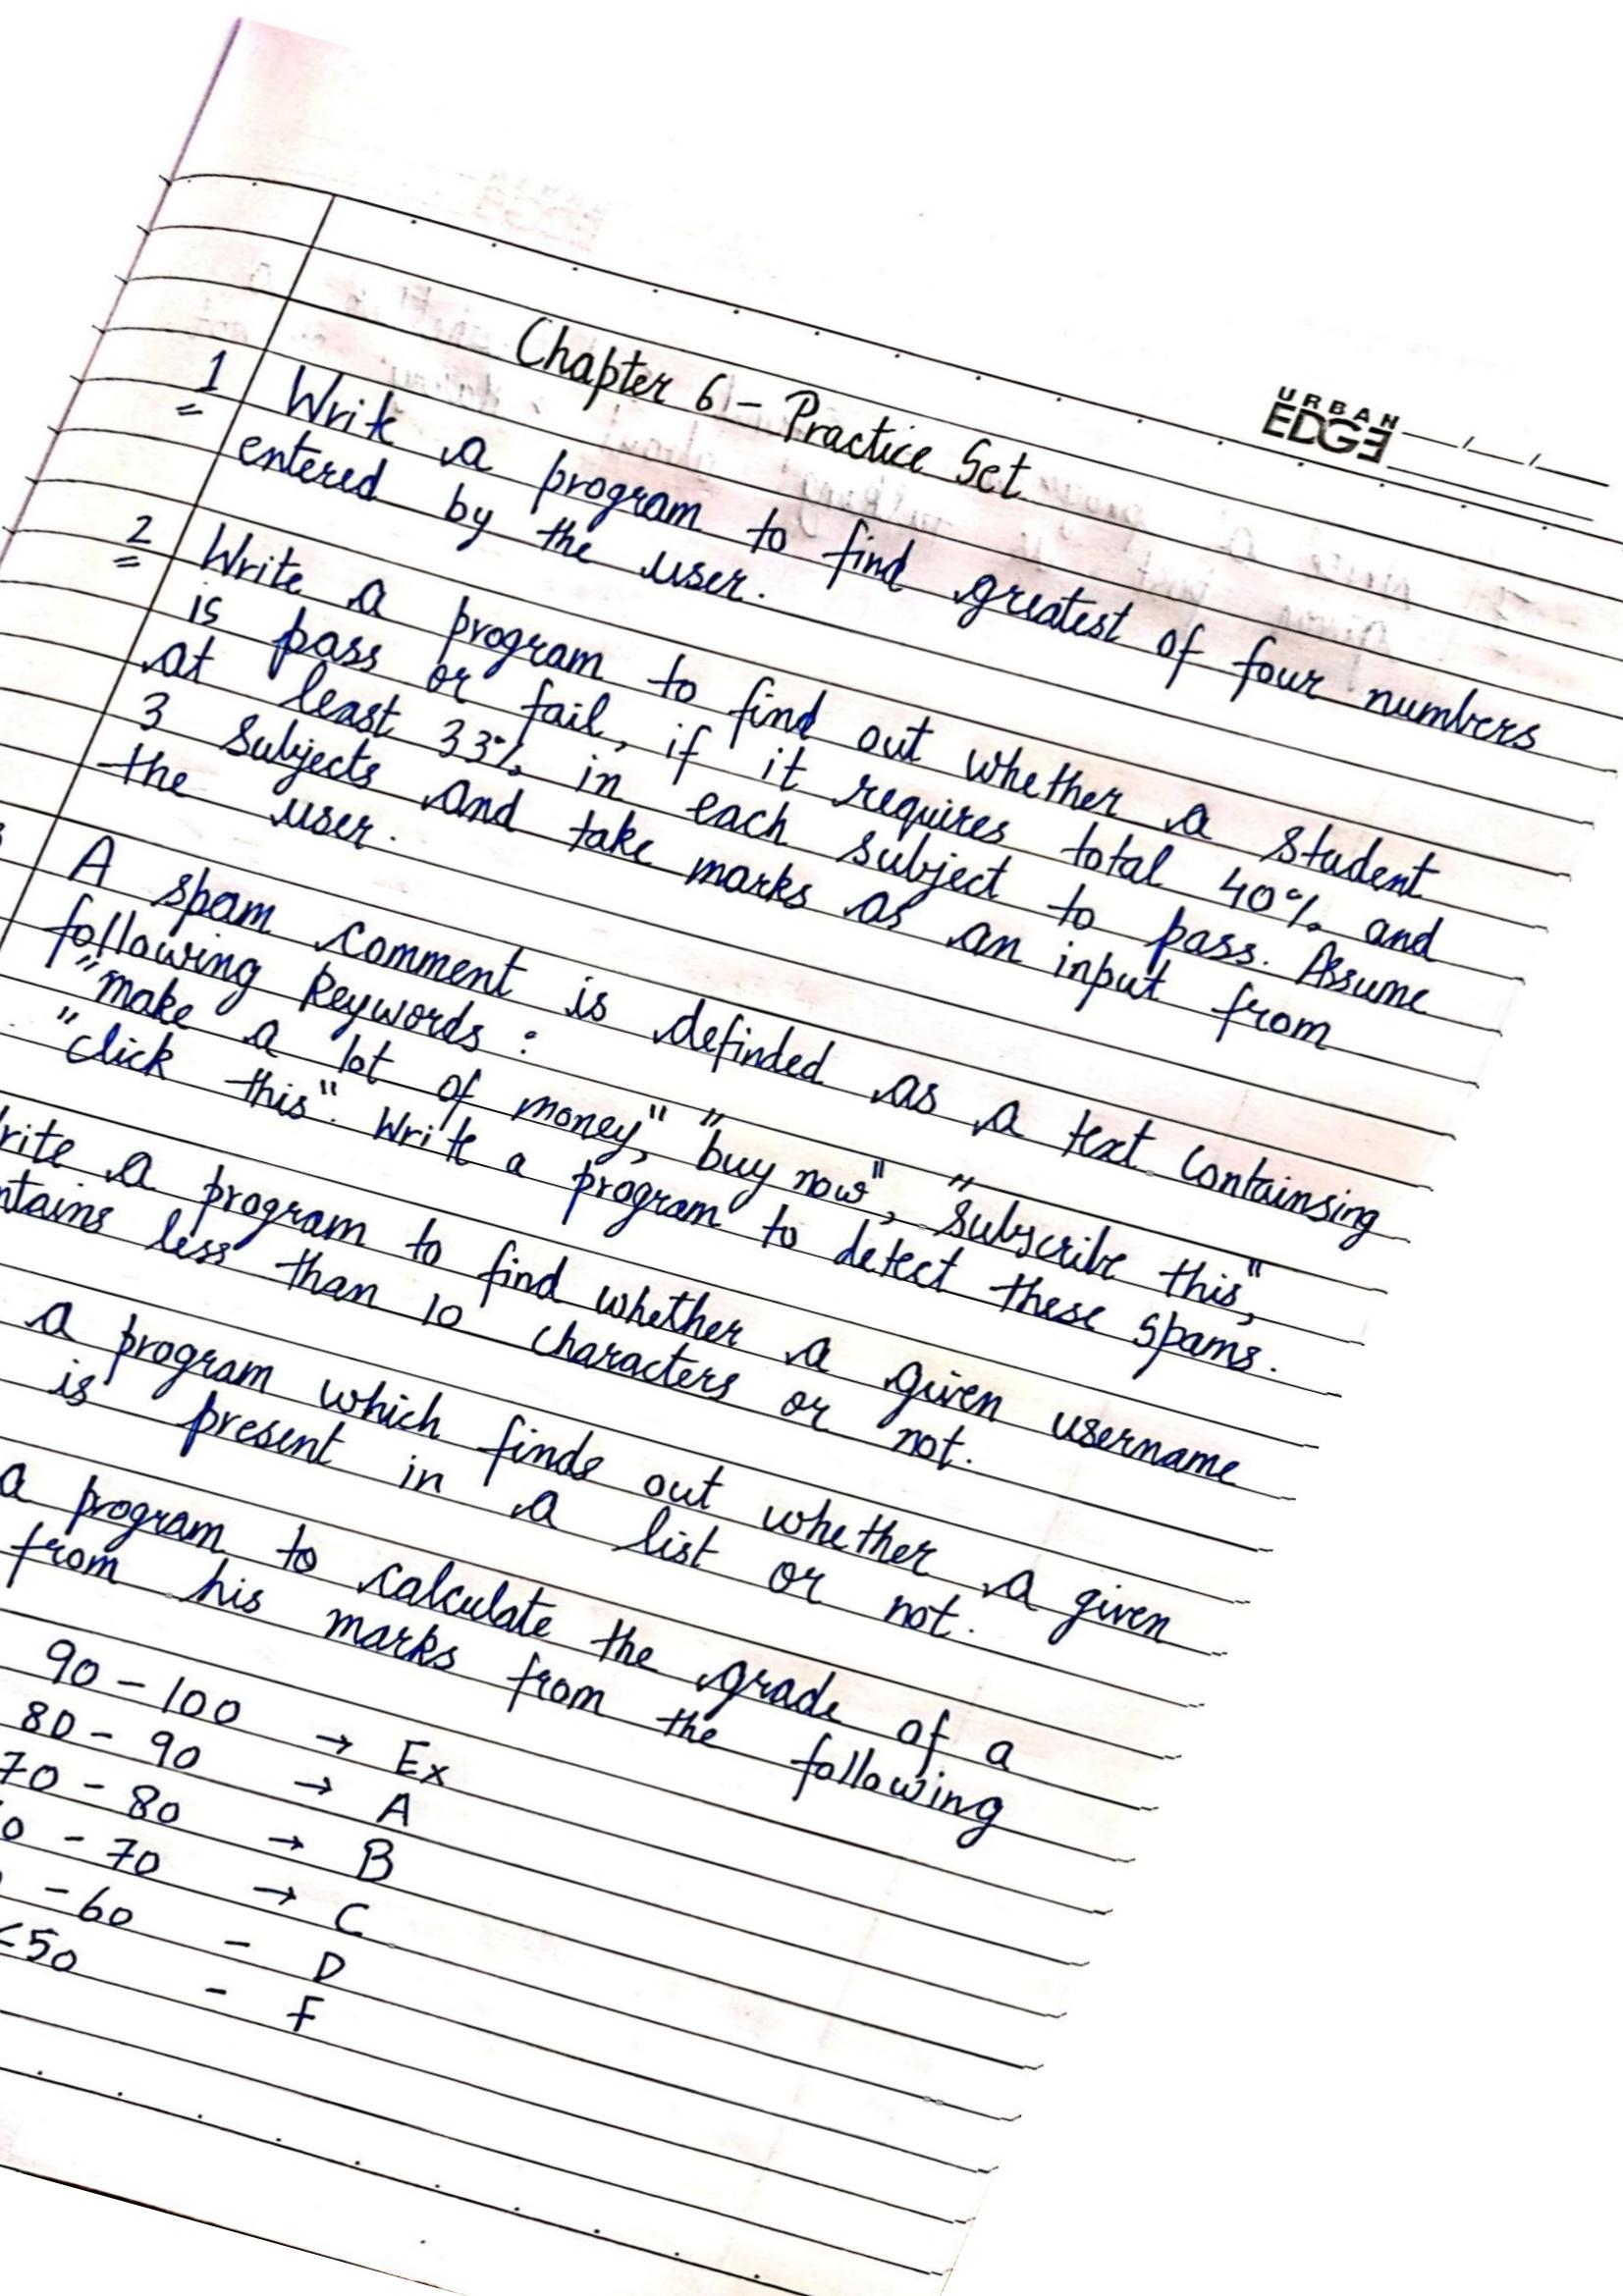 URBAN
EDGE
Chapter 6 - Practice Set
1 Write a program to find greatest of four numbers
entered by the user.
2 Write a program to find out whether a student
is pass or fail, if it requires total 40% and
at least 33% in each subject to pass. Assume
3 Subjects and take marks as an input from
the user.
A spam comment is definded as a text containsing
following keywords :
"make a lot of money", "buy now", "Subscribe this",
"click this". Write a program to detect these spams.
rite a program to find whether a given username
ntains less than 10 characters or not.
a program which finds out whether a given
is present in a list or not.
a program to calculate the grade of a
from his marks from the following
90 - 100 → Ex
80 - 90 → A
70 - 80 → B
0 - 70 → C
- 60 - D
<50 - F